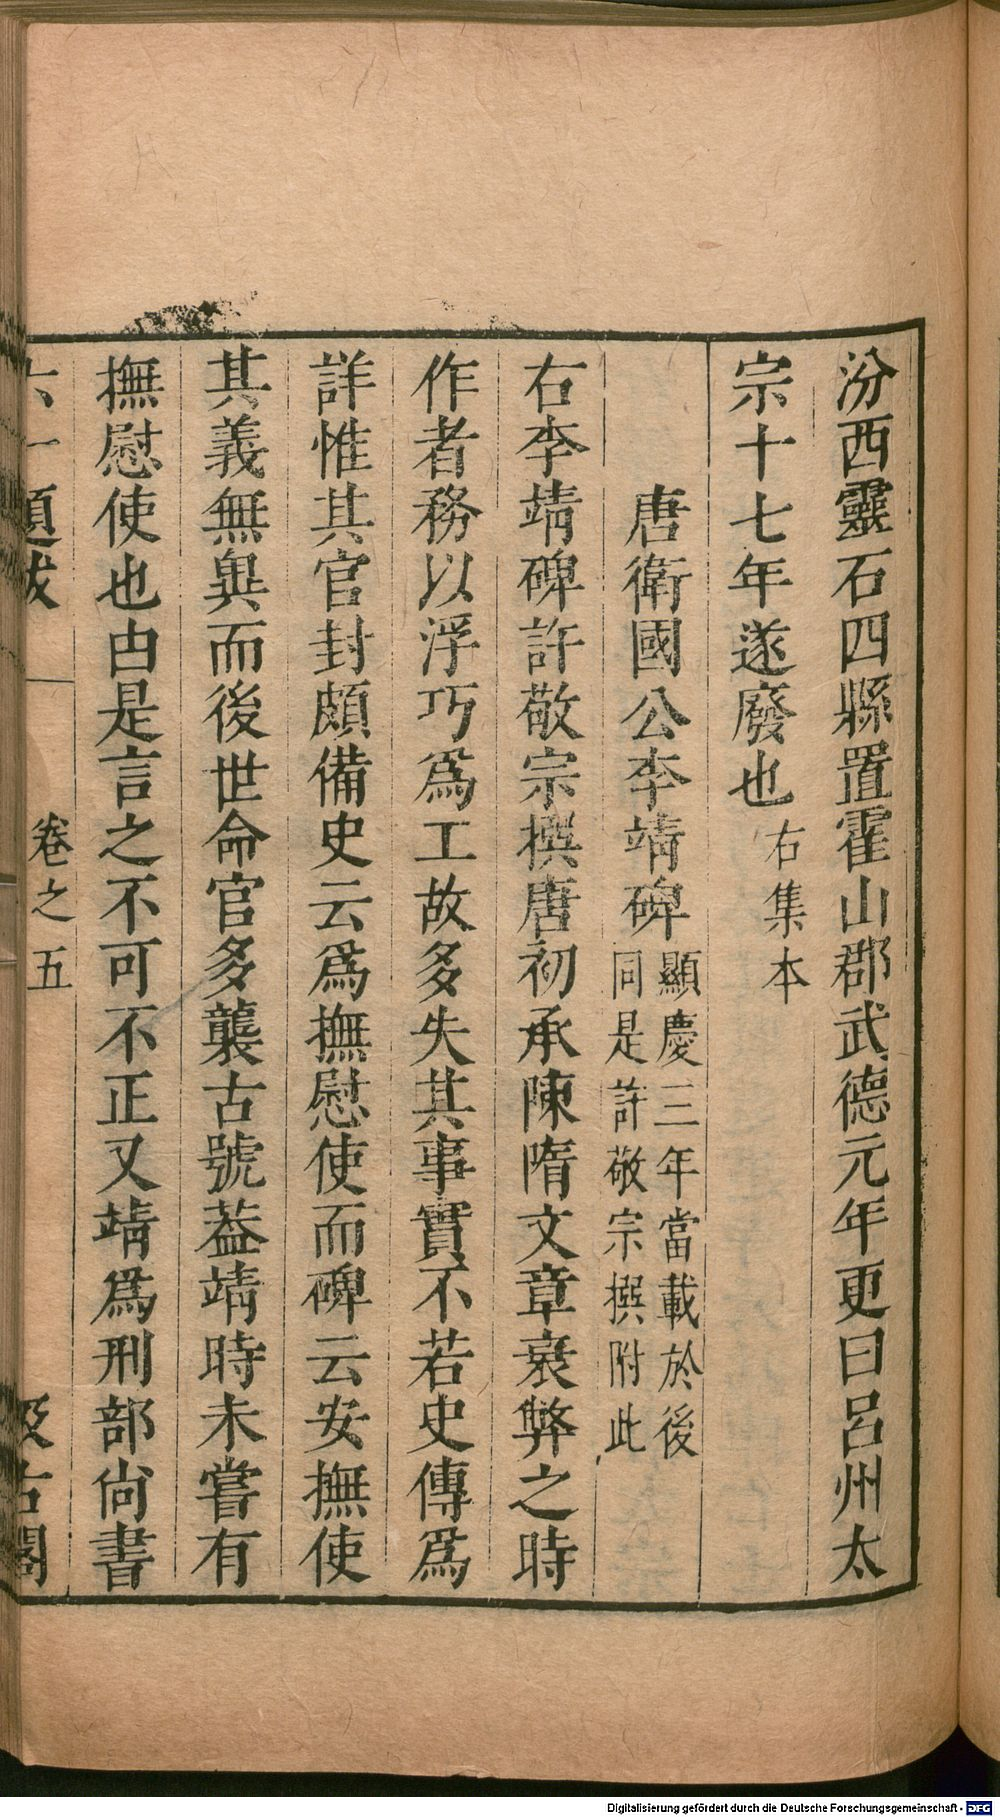 汾西靈石四縣置霍山郡武德元年更曰呂州太
宗十七年遂廢也右集本
唐衛國公李靖碑顯慶三年當載於後
同是許敬宗撰附此
右李靖碑許敬宗撰唐初承陳隋文章衰弊之時
作者務以浮巧爲工故多失其事實不若史傳爲
詳惟其官封頗備史云爲撫慰使而碑云安撫使
其義無異而後世命官多襲古號葢靖時未嘗有
撫慰使也由是言之不可不正又靖爲刑部尙書
六一題跋 卷之五 汲古閣
Digitalisierung gefördert durch die Deutsche Forschungsgemeinschaft - DFG